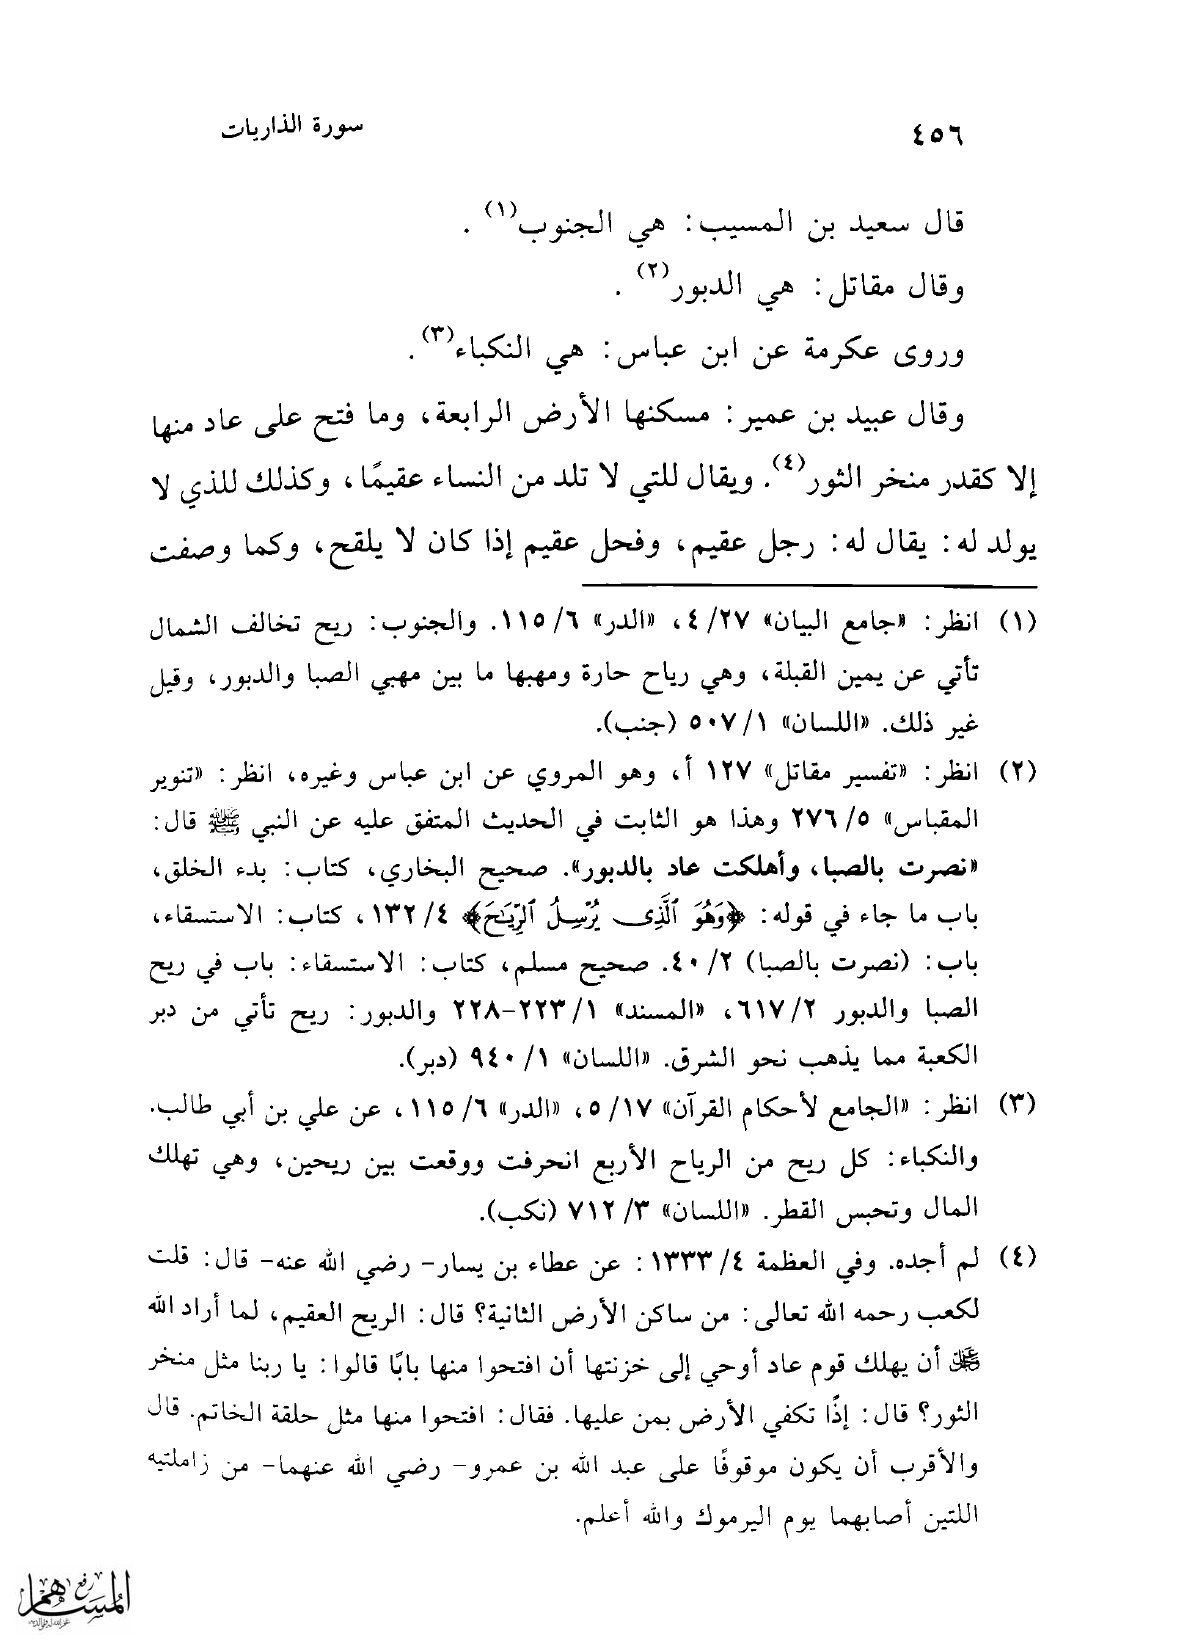 ٤٥٦ سورة الذاريات
قال سعيد بن المسيب: هي الجنوب(١) .
وقال مقاتل: هي الدبور(٢) .
وروى عكرمة عن ابن عباس: هي النكباء(٣).
وقال عبيد بن عمير: مسكنها الأرض الرابعة، وما فتح على عاد منها
إلا كقدر منخر الثور(٤). ويقال للتي لا تلد من النساء عقيمًا، وكذلك للذي لا
يولد له: يقال له: رجل عقيم، وفحل عقيم إذا كان لا يلقح، وكما وصفت
(١) انظر: «جامع البيان» ٢٧/ ٤، «الدر» ٦/ ١١٥. والجنوب: ريح تخالف الشمال
تأتي عن يمين القبلة، وهي رياح حارة ومهبها ما بين مهبي الصبا والدبور، وقيل
غير ذلك. «اللسان» ١/ ٥٠٧ (جنب).
(٢) انظر: «تفسير مقاتل» ١٢٧ أ، وهو المروي عن ابن عباس وغيره، انظر: «تنوير
المقباس» ٥/ ٢٧٦ وهذا هو الثابت في الحديث المتفق عليه عن النبي ﷺ قال:
«نصرت بالصبا، وأهلكت عاد بالدبور». صحيح البخاري، كتاب: بدء الخلق،
باب ما جاء في قوله: ﴿وَهُوَ ٱلَّذِى يُرْسِلُ ٱلرِّيَٰحَ﴾ ٤/ ١٣٢، كتاب: الاستسقاء،
باب: (نصرت بالصبا) ٢/ ٤٠. صحيح مسلم، كتاب: الاستسقاء: باب في ريح
الصبا والدبور ٢/ ٦١٧، «المسند» ١/ ٢٢٣-٢٢٨ والدبور: ريح تأتي من دبر
الكعبة مما يذهب نحو الشرق. «اللسان» ١/ ٩٤٠ (دبر).
(٣) انظر: «الجامع لأحكام القرآن» ١٧/ ٥، «الدر» ٦/ ١١٥، عن علي بن أبي طالب.
والنكباء: كل ريح من الرياح الأربع انحرفت ووقعت بين ريحين، وهي تهلك
المال وتحبس القطر. «اللسان» ٣/ ٧١٢ (نكب).
(٤) لم أجده. وفي العظمة ٤/ ١٣٣٣: عن عطاء بن يسار- رضي الله عنه- قال: قلت
لكعب رحمه الله تعالى: من ساكن الأرض الثانية؟ قال: الريح العقيم، لما أراد الله
ﷻ أن يهلك قوم عاد أوحي إلى خزنتها أن افتحوا منها بابًا قالوا: يا ربنا مثل منخر
الثور؟ قال: إذًا تكفي الأرض بمن عليها. فقال: افتحوا منها مثل حلقة الخاتم. قال
والأقرب أن يكون موقوفًا على عبد الله بن عمرو- رضي الله عنهما- من زاملتيه
اللتين أصابهما يوم اليرموك والله أعلم.